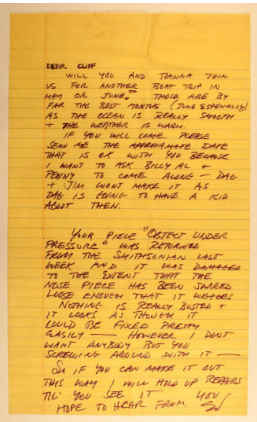 DEAR CLIFF
WILL YOU AND JOANNA JOIN
US FOR ANOTHER BOAT TRIP IN
MAY OR JUNE. THOSE ARE BY
FAR THE BEST MONTHS (JUNE ESPECIALLY)
AS THE OCEAN IS REALLY SMOOTH
+ THE WEATHER IS WARM.
IF YOU WILL COME PLEASE
SEND ME THE APPROXIMATE DATE
THAT IS OK WITH YOU BECAUSE
I WANT TO ASK BILLY AL +
PENNY TO COME ALONG — DAG
+ JIM WONT MAKE IT AS
DAG IS GOING TO HAVE A KID
ABOUT THEN.
YOUR PIECE "OBJECT UNDER
PRESSURE" WAS RETURNED
FROM THE SMITHSONIAN LAST
WEEK AND IT WAS DAMAGED
TO THE EXTENT THAT THE
NOSE PIECE HAS BEEN JARRED
LOOSE ENOUGH THAT IT
NOTHING IS REALLY BUSTED +
IT LOOKS AS THOUGH IT
COULD BE FIXED PRETTY
EASILY — HOWEVER I DONT
WANT ANYBODY BUT YOU
SCREWING AROUND WITH IT —
SO IF YOU CAN MAKE IT OUT
THIS WAY I WILL HOLD UP REPAIRS
TIL' YOU SEE IT
HOPE TO HEAR FROM YOU